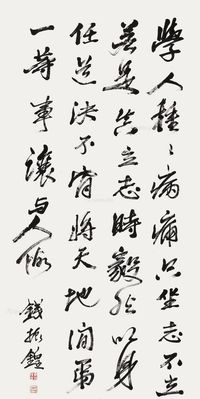 學人種々病痛只坐志不立
若是真立志時毅然以身
任道決不肯將天地間第
一等事讓与人做
錢振鍠